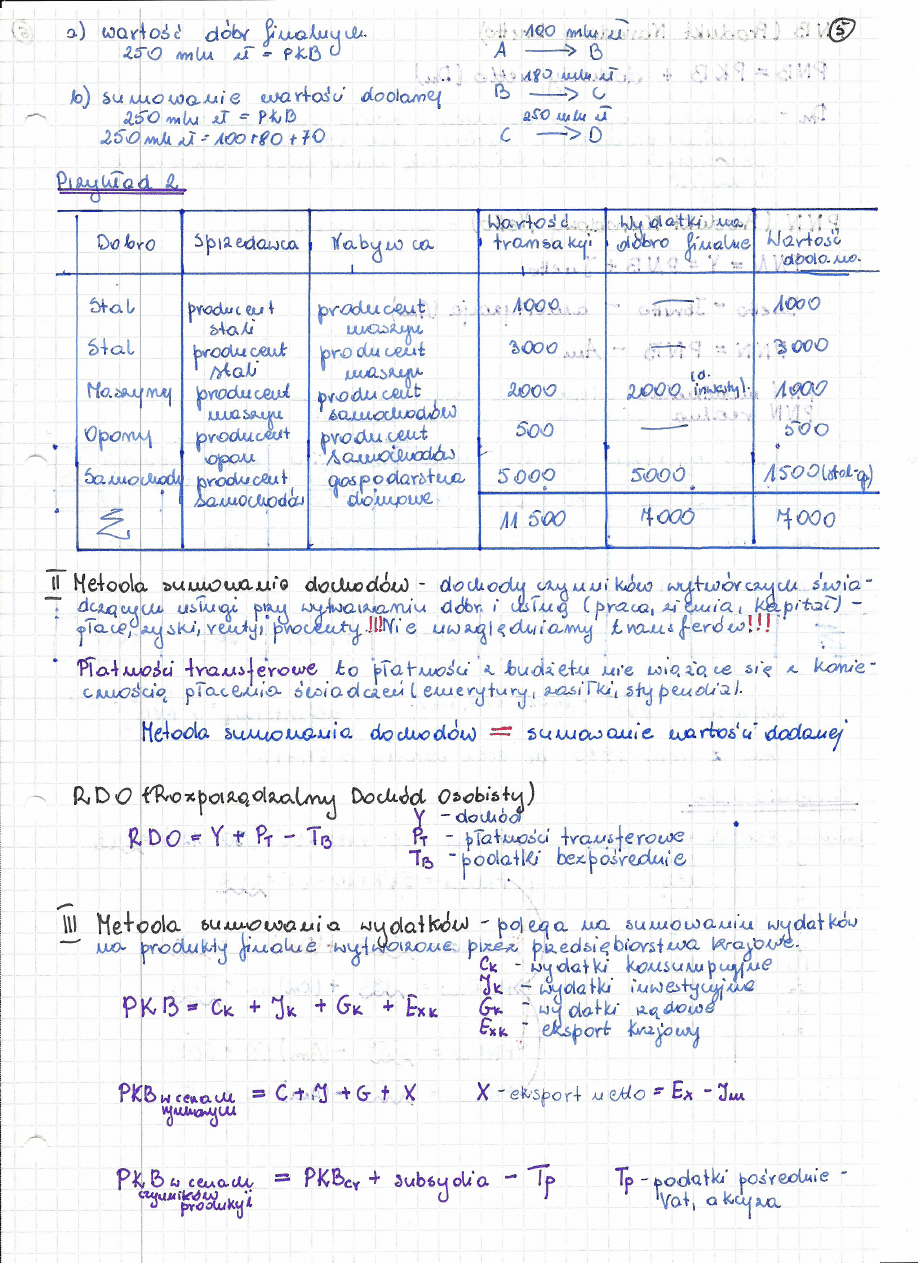 5
a) wartość dóbr finalnych
250 mln zł = PKB
b) sumowanie wartości dodanej
250 mln zł = PKB
250 mln zł = 100+80+70
100 mln zł
A → B
180 mln zł
B → C
250 mln zł
C → D
Przykład 2
Dobro | Sprzedawca | Nabywca | Wartość transakcji | Wydatki na dobro finalne | Wartość dodana.
Stal | producent stali | producent maszyn | 1000 | — | 1000
Stal | producent stali | producent maszyn | 3000 | — | 3000
Maszyny | producent maszyn | producent samochodów | 2000 | 2000 (d. inwesty). | 1000
Opony | producent opon | producent samochodów | 500 | — | 500
Samochody | producent samochodów | gospodarstwa domowe | 5000 | 5000 | 1500
Σ | | | 11 500 | 7000 | 7000
II Metoda sumowania dochodów - dochody czynników wytwórczych świa-
dczących usługi przy wytwarzaniu dóbr i usług (praca, ziemia, kapitał) -
płace, zyski, renty, procenty!!! Nie uwzględniamy transferów!!!
Płatności transferowe to płatności z budżetu nie wiążące się z konie-
cznością płacenia świadczeń (emerytury, zasiłki, stypendia).
Metoda sumowania dochodów = sumowanie wartości dodanej
RDO (Rozporządzalny Dochód Osobisty)
RDO = Y + PT - TB
Y - dochód
PT - płatności transferowe
TB - podatki bezpośrednie
III Metoda sumowania wydatków - polega na sumowaniu wydatków
na produkty finalne wytworzone przez przedsiębiorstwa krajowe.
CK - wydatki konsumpcyjne
JK - wydatki inwestycyjne
PKB = CK + JK + GK + EXK
GK - wydatki rządowe
EXK - eksport krajowy
PKB w cenach rynkowych = C + J + G + X
X - eksport netto = EX - Jm
PKB w cenach czynników produkcji = PKBcr + subsydia - Tp
Tp - podatki pośrednie -
Vat, akcyza